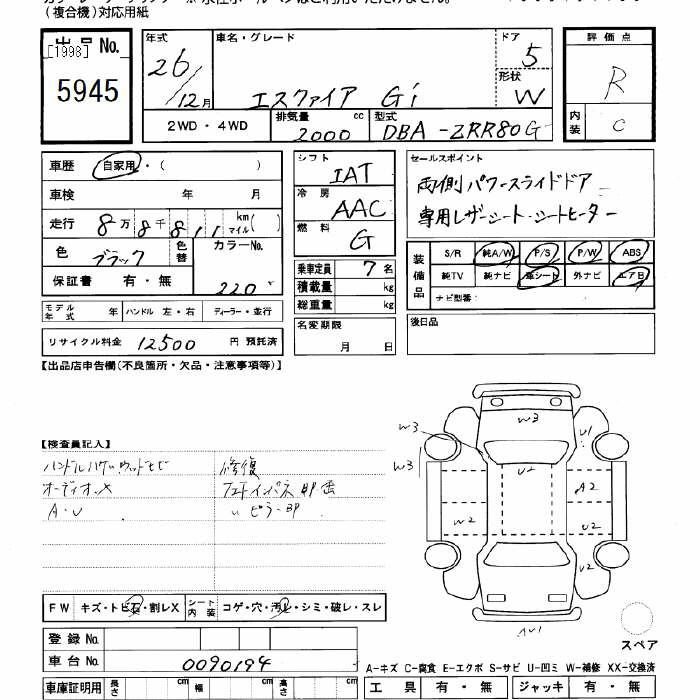 (複合機)対応用紙
出品 No.
[1998]
5945
年式
26/12月
車名・グレード
エスクァイア Gi
ドア
5
形状
W
評価点
R
内装
C
2WD・4WD
排気量
2000 cc
型式
DBA-ZRR80G
車歴 自家用・( )
車検 年 月
走行 8万8千811 km マイル( )
色 ブラック
色替
カラーNo.
220
保証書 有・無
シフト
IAT
冷房
AAC
燃料
G
乗車定員 7名
積載量 kg
総重量 kg
セールスポイント
両側パワースライドドア
専用レザーシート・シートヒーター
装備品
S/R 純A/W P/S P/W ABS
純TV 純ナビ 革シート 外ナビ エアB
ナビ型番:
モデル年式 年 ハンドル 左・右 ディーラー・並行
リサイクル料金 12500 円 預託済
名変期限
月 日
後日品
【出品店申告欄(不良箇所・欠品・注意事項等)】
【検査員記入】
オーディオ×
A・U
修復
W3
W3
W3
U1
U2
A2
W2
U2
U2
AU1
FW キズ・トビ石・割レX
シート内装 コゲ・穴・汚レ・シミ・破レ・スレ
登録 No.
車台 No. 0090194
スペア
A-キズ C-腐食 E-エクボ S-サビ U-凹ミ W-補修 XX-交換済
車庫証明用 長さ cm 幅 cm 高さ cm
工具 有・無 ジャッキ 有・無